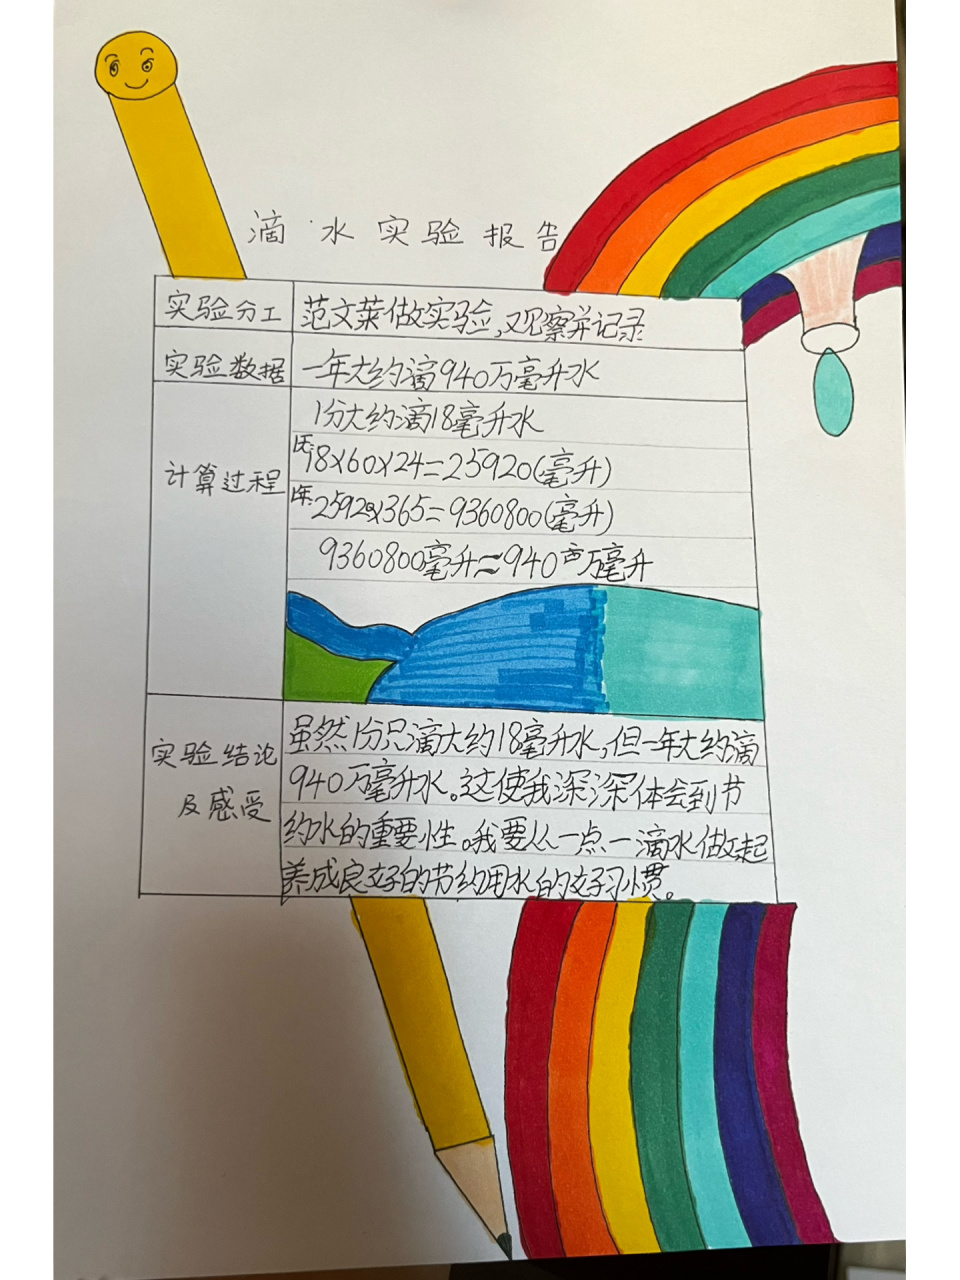 滴水实验报告
实验分工 范文莱做实验,观察并记录
实验数据 一年大约滴940万毫升水
计算过程
1分大约滴18毫升水
1天:18×60×24=25920(毫升)
1年:25920×365=9360800(毫升)
9360800毫升≈940万毫升
实验结论
及感受
虽然1分只滴大约18毫升水,但一年大约滴
940万毫升水。这使我深深体会到节
约水的重要性。我要从一点一滴水做起
养成良好的节约用水的好习惯。